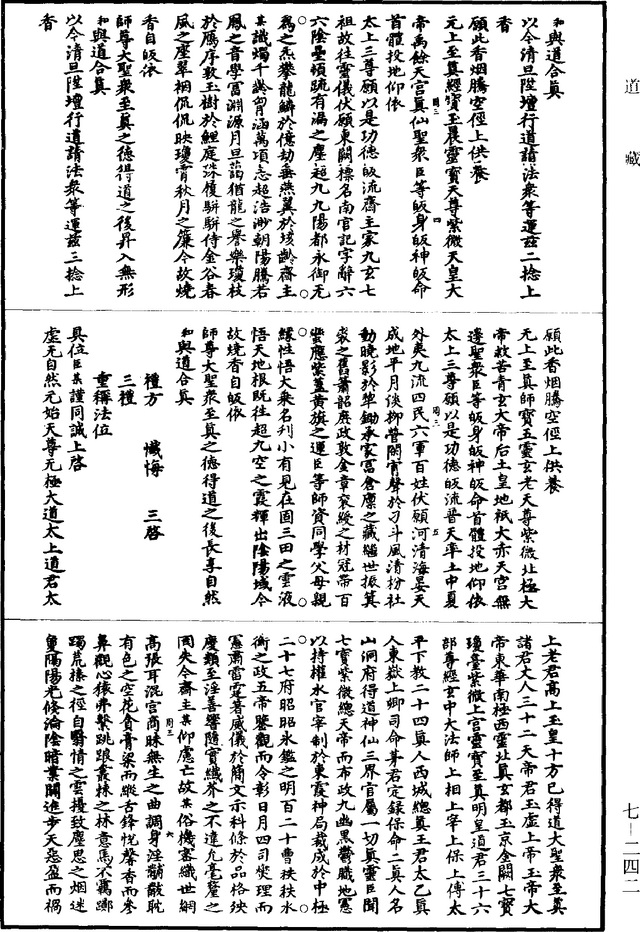 道藏
和與道合眞
以今清旦陞壇行道請法衆等運茲二捻上
香
願此香烟騰空徑上供養
元上至眞經寶玉晨靈寶天尊紫微天皇大
帝禹餘天宮眞仙聖衆臣等皈身皈神皈命
首體投地仰依
太上三尊願以是功德皈流齋主家九玄七
祖故徃靈儀伏願東關標名南官記字辭六
六陰墨頓疏有漏之塵超九九陽都永御无
爲之炁攀龍鱗於億劫垂燕翼於垓齡齋主
某識燭千齡胷涵萬頃志超浩渺朝陽騰若
鳳之音學富淵源月旦藹猶龍之譽樂瓊枝
於鴈序敎玉樹於鯉庭洙價駢駢侍金谷春
風之座翠裀侃侃映瓊霄秋月之簾今故燒
香自皈依
師尊大聖衆至眞之德得道之後昇入無形
和與道合眞
以今清旦陞壇行道請法衆等運茲三捻上
香
願此香烟騰空徑上供養
无上至眞師寶五靈玄老天尊紫微北極大
帝救苦青玄大帝后土皇地祇大赤天宮無
邊聖衆臣等皈身皈神皈命首體投地仰依
太上三尊願以是功德皈流普天率土中夏
外夷九流四民六軍百姓伏願河清海晏天
成地平月淡柳營閉宵聲於刁斗風清枌社
動曉影於犂鋤承家富倉廩之藏繼世振箕
裘之舊蕭韶歷政敦金章裒綬之材冠帶百
蠻應紫蓋黃旗之運臣等師資同學父母親
緣性悟大乘名刋小有見在固三田之雲液
悟天地根既往超九空之霞輝出陰陽域今
故燒香自皈依
師尊大聖衆至眞之德得道之後長享自然
和與道合眞
禮方 懺悔 三啓
三禮
重稱法位
具位臣某謹同誠上啓
虛无自然元始天尊无極大道太上道君太
上老君高上玉皇十方已得道大聖衆至眞
諸君丈人三十二天帝君玉虛上帝玉帝大
帝東華南極西靈北眞玄都玉京金闕七寶
瓊臺紫微上宮靈寶至眞明皇道君三十六
部尊經玄中大法師上相上宰上保上傅太
平下敎二十四眞人西城總眞王君太乙眞
人東嶽上卿司命茅君定錄保命二眞人名
山洞府得道神仙三界官屬一切眞靈臣聞
七寶紫微總天帝而布政九幽黑欝職地憲
以持權水官宰制於東霞神局裁成於中極
二十七府昭昭氷鑑之明百二十曹扶扶水
衡之政五帝鑒觀而令彰日月四司爕理而
憲肅雷霆著威儀於簡文示科條於品格殃
慶類至淫善響隨寶織芥之不違允毫釐之
罔失令齋主某仰慮亡故某俗機寒織世網
高張耳混宮商昧無生之曲調身淫黼黻耽
有色之空花食膏粱而縱舌鋒悅馨香而參
鼻觀心猿弗繫跳踉叢棘之林意馬不羈躑
躅荒榛之徑自翳情之雲擾致塵思之烟迷
重陽陽光倐淪陰暗業關進步天惡盈而禍
七—二四二